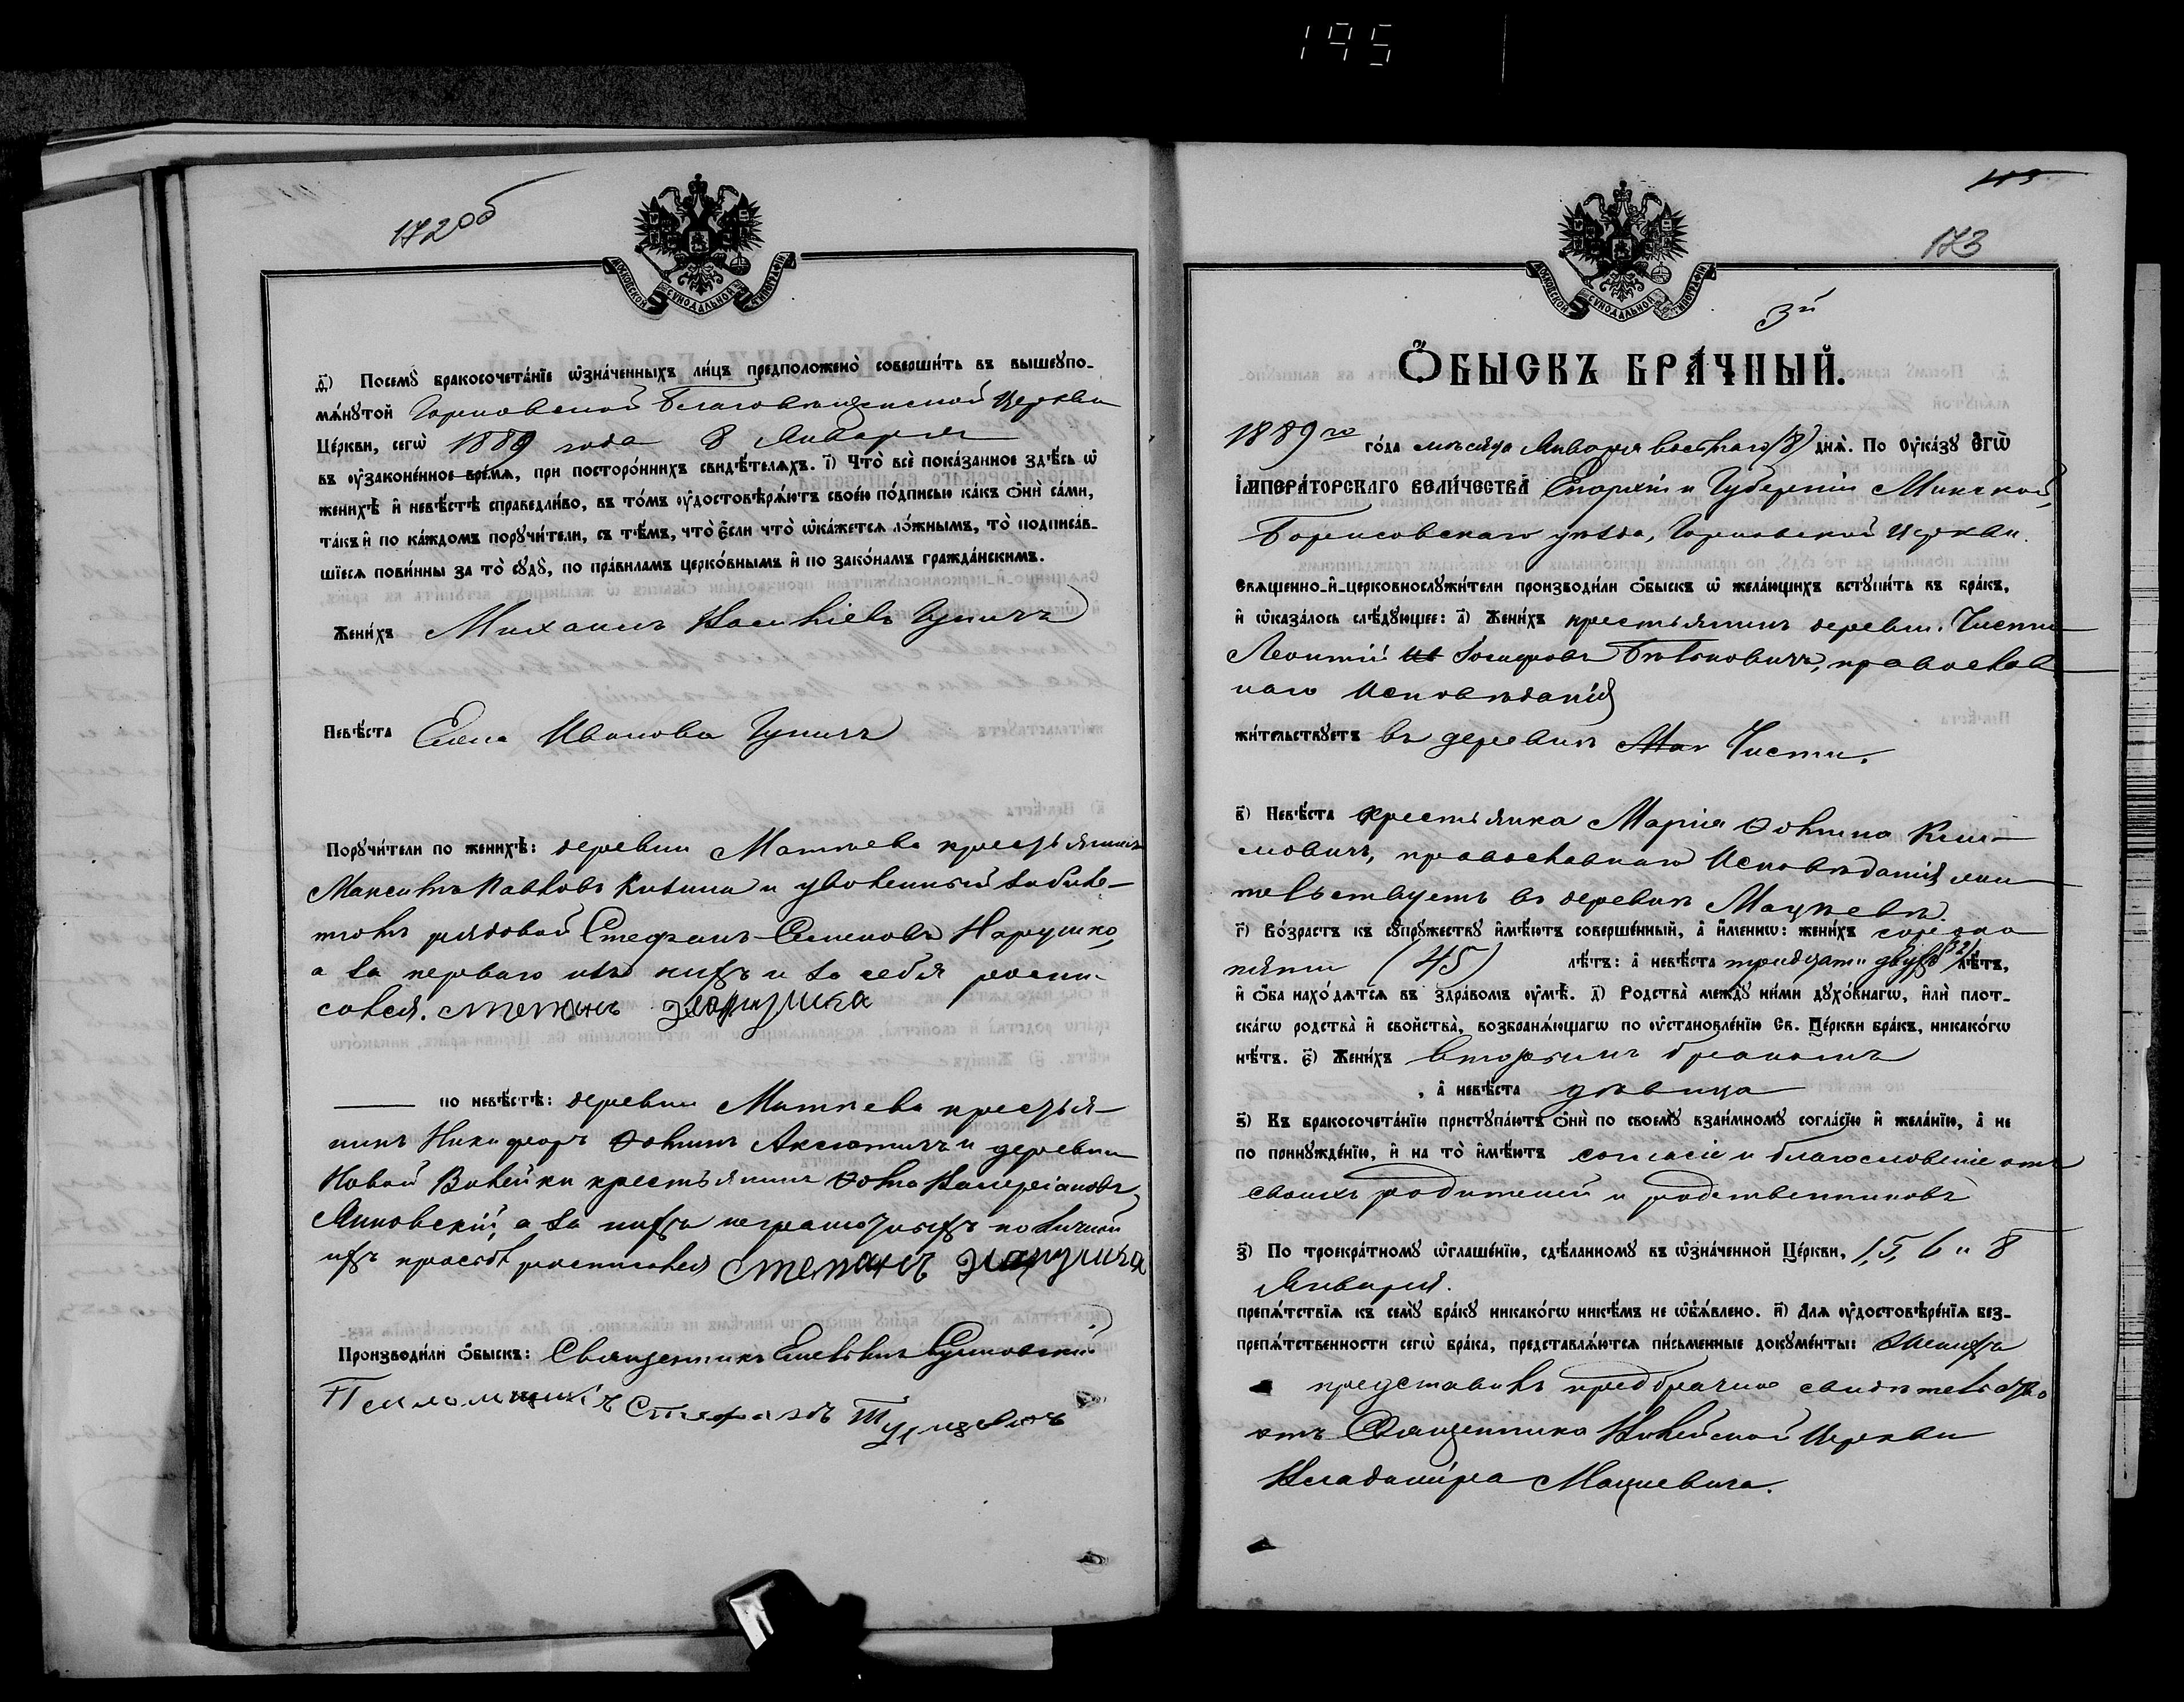 195
172об
МОСКОВСКОЙ СѴНОДАЛЬНОЙ ТИПОГРАФІИ
д҃) Посемꙋ̀ бракосочета́нїе ѡ҆зна́ченныхъ ли́цъ предположено̀ соверши́ть въ вышеꙋпо-
мѧ́нꙋтой Гориовской Благовѣщенской Церкви
Це́ркви, сегѡ̀ 1889 года 8 Января
въ ᲂу҆зако́нённое вре́мѧ, при посторо́ннихъ свидѣ́телѧхъ. і҃) Что̀ всѐ пока́занное здѣ́сь ѡ҆
женихѣ̀ и҆ невѣ́стѣ справедли́во, въ то́мъ ᲂу҆достовѣрѧ́ютъ свое́ю по́дписью ка́къ ѻ҆нѝ са́ми,
та́къ и҆ по ка́ждомъ порꙋчи́тели, съ тѣ́мъ, что̀ є҆́сли что̀ ѡ҆ка́жетсѧ ло́жнымъ, то̀ подписа́в-
шїесѧ пови́нны за то̀ сꙋдꙋ̀, по пра́виламъ церко́внымъ и҆ по зако́намъ гражда́нскимъ.
Жени́хъ Михаилъ Васильевъ Гуничъ
Невѣ́ста Елена Иванова Гуничъ
Порꙋчи́тели по женихѣ̀: деревни Маткева крестьянинъ
Максимъ Павловъ и уволенный
рядовой Стефанъ Семеновъ Нарушко,
а за перваго изъ нихъ и за себя роспи-
сался. Степанъ
по невѣ́стѣ: деревни Маткева крестья-
нинъ Никифоръ Ѳоминъ Аксютичъ и деревни
Новой Вилейки крестьянинъ Ѳома Валеріановъ
Янковскій, а за нихъ неграмотныхъ по личной
ихъ просьбѣ росписался Степанъ
Производи́ли ѻ҆́быскъ: Священникъ
Псаломщикъ Стефанъ
173
МОСКОВСКОЙ СѴНОДАЛЬНОЙ ТИПОГРАФІИ
3й
ѺБЫСКЪ БРА́ЧНЫЙ.
1889го го́да мѣсяца Января восьмаго (8) днѧ̀. По ᲂу҆ка́зꙋ Є҆гѡ̀
І҆МПЕРА́ТОРСКАГО ВЕЛИ́ЧЕСТВА Епархіи и Губерніи Минской,
Борисовскаго уѣзда, Церкви.
Свѧще́нно-и҆-церковнослꙋжи́тели производи́ли ѻ҆́быскъ ѡ҆ жела́ющихъ встꙋпи́ть въ бра́къ,
и҆ ѡ҆каза́лось слѣ́дꙋющее: а҃) Жени́хъ крестьянинъ деревни Чисти
Леонтій Іосифовъ православ
наго Исповѣданія
жи́тельствꙋетъ въ деревнѣ Чисти.
в҃) Невѣ́ста крестьянка Марія Ѳомина Кли-
мовичъ, православнаго Исповѣданія жи
тельствуетъ въ деревнѣ Мацкевѣ.
г҃) Во́зрастъ къ сꙋпрꙋ́жествꙋ и҆мѣ́ютъ соверше́нный, а҆̀ и҆́менно: жени́хъ сорока
пяти (45) лѣ́тъ: а҆̀ невѣ́ста тридцати двухъ (32) лѣ́тъ,
и҆ ѻ҆́ба нахо́дѧтсѧ въ здра́вомъ ᲂу҆мѣ̀. д҃) Родства̀ междꙋ̀ ни́ми дꙋхо́внагѡ, и҆лѝ плот-
ска́гѡ родства̀ и҆ сво́йства̀, возбранѧ́ющагѡ по ᲂу҆становле́нїю Св. Це́ркви бра́къ, никако́гѡ
нѣ́тъ. є҃) Жени́хъ вторымъ бракомъ
, а҆̀ невѣ́ста дѣвица
ѕ҃) Къ бракосочета́нїю пристꙋпа́ютъ ѻ҆нѝ по своемꙋ̀ взаи́мномꙋ согла́сїю и҆ жела́нїю, а҆̀ не
по принꙋжде́нїю, и҆ на то̀ и҆мѣ́ютъ согласіе и благословеніе отъ
своихъ родителей и родственниковъ
з҃) По троекра́тномꙋ ѡ҆глаше́нїю, сдѣ́ланномꙋ въ ѡ҆зна́ченной Це́ркви, 1, 5, 6 и 8
Января.
препѧ́тствїѧ къ семꙋ̀ бра́кꙋ никако́гѡ никѣ́мъ не ѡ҆б̾ѧ́влено. и҃) Длѧ ᲂу҆достовѣре́нїѧ без-
препѧ́тственности сегѡ̀ бра́ка, представлѧ́ютсѧ пи́сьменные докꙋме́нты: Женихъ
представилъ предбрачное свидѣтельство
отъ Священника Церкви
Владиміра Мацкевича.